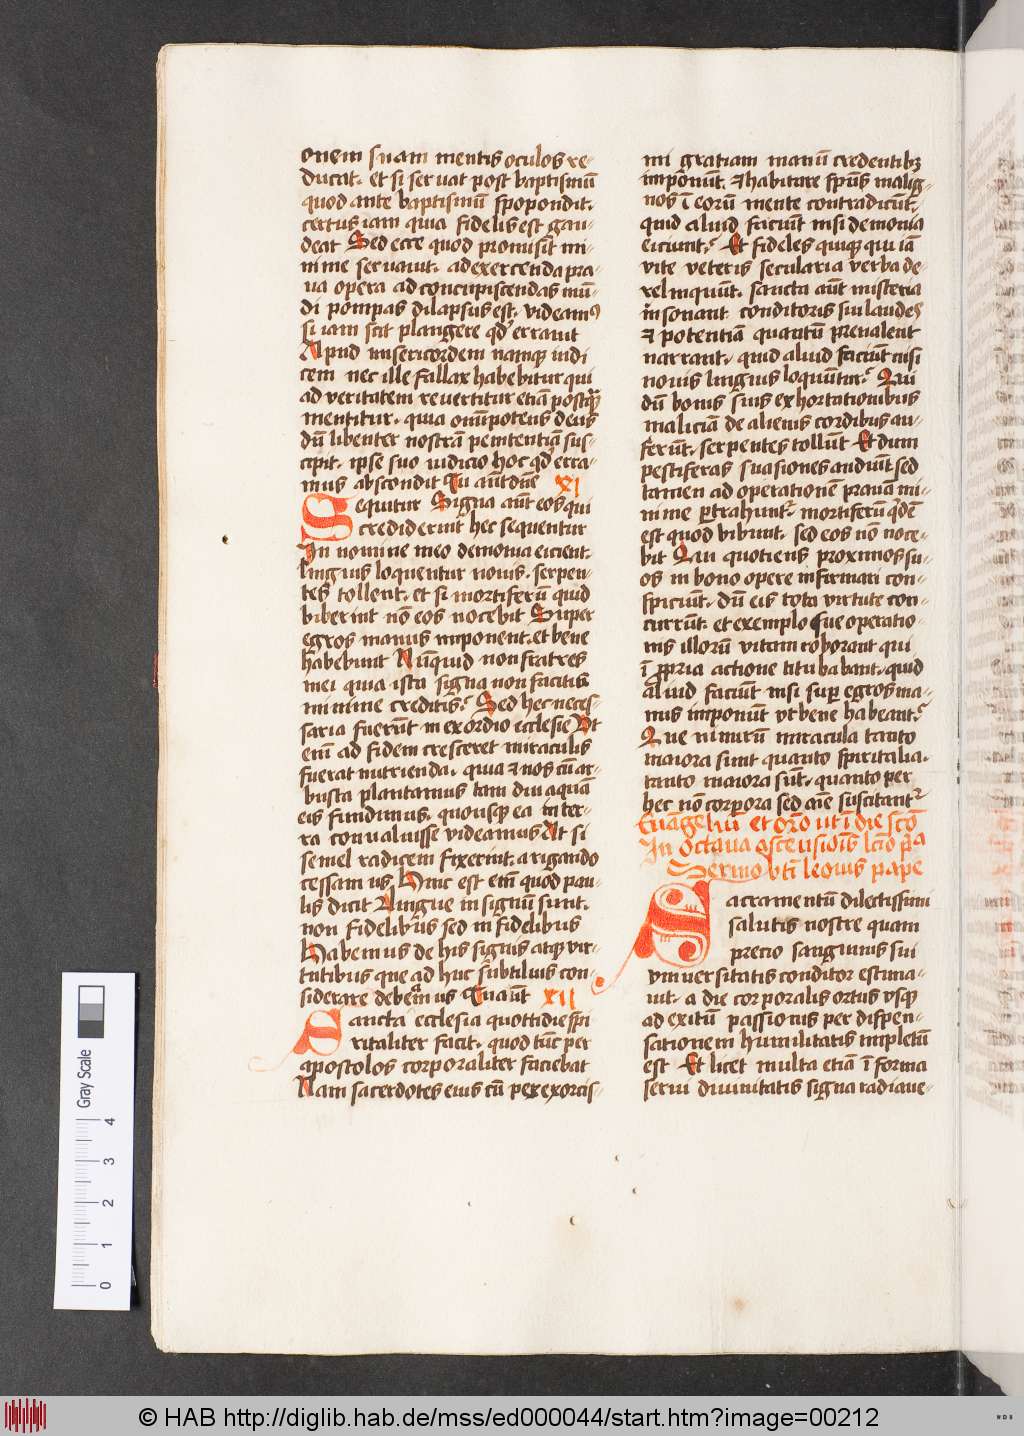 onem suam mentis oculos re-
ducat. et si seruat post baptismū
quod ante baptismū spopondit.
certus iam quia fidelis est gau-
deat Sed ecce quod promisit mi-
nime seruauit. ad exercenda pra-
ua opera ad concupiscendas mū-
di pompas dilapsus est. videamꝰ
si iam scit plangere qd' errauit
Apud misericordem namqꝫ iudi
cem nec ille fallax habebitur qui
ad veritatem reuertitur etiā postqꝫ
mentitur. quia omīpotens deus
dū libenter nostrā penitentiā sus-
cipit. ipse suo iudicio hoc qd' erra-
mus abscondit Tu aūt dn̄e XI
Sequitur Signa aūt eos qui
crediderint hec sequentur
In nomine meo demonia eicient.
linguis loquentur nouis. serpen-
tes tollent. et si mortiferū quid
biberint nō eos nocebit Super
egros manus imponent. et bene
habebunt Nūnquid non fratres
mei quia ista signa non facitis
minime creditis? Sed hec neces-
saria fuerūt in exordio ecclesie Vt
em̄ ad fidem cresceret miraculis
fuerat nutrienda. quia ⁊ nos cū ar-
busta plantamus tam diu aquā
eis fundimus. quousqꝫ ea in ter-
ra conualuisse videamus At si
semel radicem fixerint. a rigando
cessamus. Hinc est em̄ quod pau-
lis dicit Lingue in signū sunt.
non fidelibus sed infidelibus
Habemus de his signis atqꝫ vir-
tutibus que ad huc subtilius con-
siderare debemus Tu aūt XII
Sancta ecclesia quottidie spi
ritaliter facit. quod tūc per
apostolos corporaliter faciebat
Nam sacerdotes eius cū per exorcis-
mi gratiam manū credentibꝫ
imponūt. ⁊ habitare spūs malig-
nos ī eorū mente contradicūt.
quid aliud faciūt nisi demonia
eiciunt? Et fideles quiqꝫ qui iā
vite veteris secularia verba de-
relinquūt. sancta aūt misteria
īsonant conditoris sui laudes
⁊ potentiā quantū preualent
narrant. quid aliud faciūt nisi
nouis linguis loquūtur? Qui
dū bonis suis exhortationibus
maliciā de alienis cordibus au-
ferūt. serpentes tollūt Et dum
pestiferas suasiones audiūt sed
tamen ad operationē prauā mi-
nime ꝑtrahuntur. mortiferū q'dē
est quod bibunt. sed eos nō noce-
bit Qui quotiens proximos su-
os in bono opere infirmari con-
spiciūt. dū eis tota virtute con-
currūt. et exemplo sue operatio-
nis illorū vitam roborant qui
ī ꝓpria actione titubabant. quid
aliud faciūt nisi supꝫ egros ma-
nus imponūt vt bene habeant?
Que nimirū miracula tanto
maiora sunt quanto spiritalia.
tanto maiora sūt. quanto per
hec nō corpora sed aīe suscitantꝛ
Euāgeliū et orō ut ī die scō
In octaua ascensiōis lectio p'a
Sermo bti leonis pape
Sacramentū dilectissimi
salutis nostre quam
precio sanguinis sui
vniuersitatis conditor estima-
uit. a die corporalis ortus vsqꝫ
ad exitū passionis per dispen-
sationem humilitatis impletū
est Et licet multa etiā ī forma
serui diuinitatis signa radiaue-
Gray Scale
0 1 2 3 4
© HAB http://diglib.hab.de/mss/ed000044/start.htm?image=00212